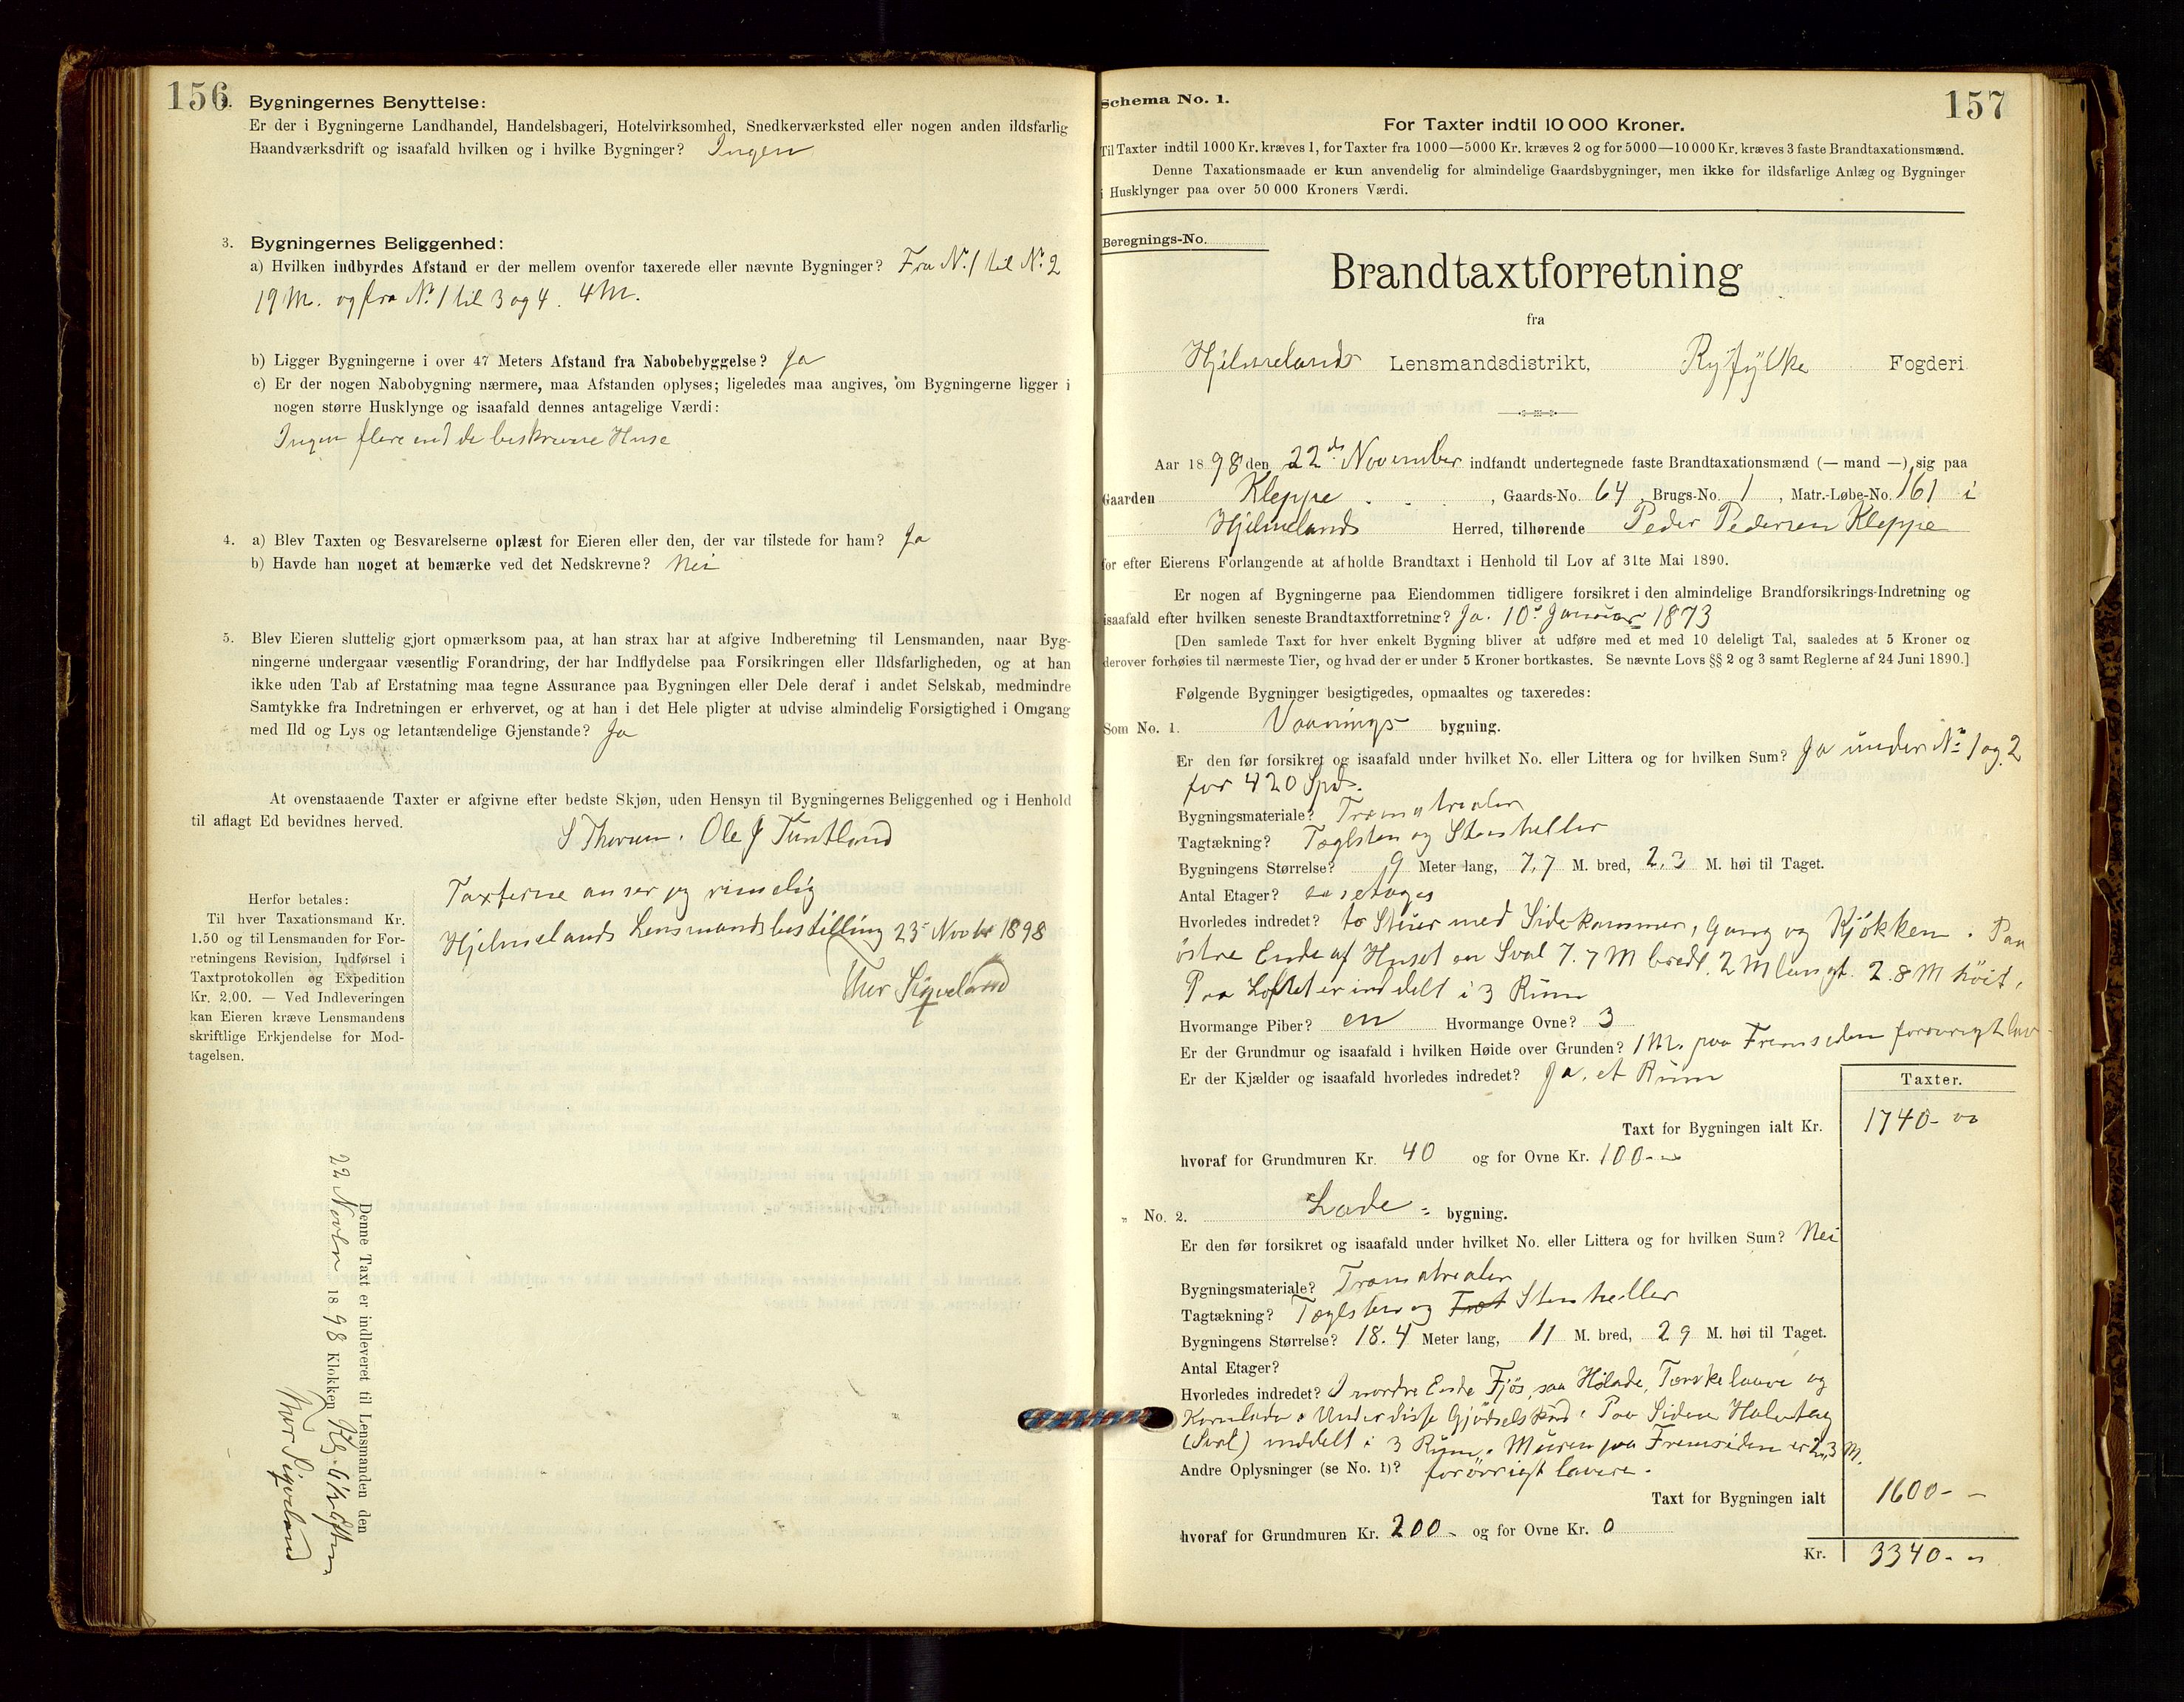 156
2. Bygningernes Benyttelse:
Er der i Bygningerne Landhandel, Handelsbageri, Hotelvirksomhed, Snedkerværksted eller nogen anden ildsfarlig
Haandværksdrift og isaafald hvilken og i hvilke Bygninger? Ingen
3. Bygningernes Beliggenhed:
a) Hvilken indbyrdes Afstand er der mellem ovenfor taxerede eller nævnte Bygninger? Fra No. 1 til No. 2
19 M. og fra No 1 til 3 og 4. 4 M.
b) Ligger Bygningerne i over 47 Meters Afstand fra Nabobebyggelse? Ja
c) Er der nogen Nabobygning nærmere, maa Afstanden oplyses; ligeledes maa angives, om Bygningerne ligger i
nogen større Husklynge og isaafald dennes antagelige Værdi:
Ingen flere end de beskrevne Huse
4. a) Blev Taxten og Besvarelserne oplæst for Eieren eller den, der var tilstede for ham? Ja
b) Havde han noget at bemærke ved det Nedskrevne? Nei
5. Blev Eieren sluttelig gjort opmærksom paa, at han strax har at afgive Indberetning til Lensmanden, naar Byg-
ningerne undergaar væsentlig Forandring, der har Indflydelse paa Forsikringen eller Ildsfarligheden, og at han
ikke uden Tab af Erstatning maa tegne Assurance paa Bygningen eller Dele deraf i andet Selskab, medmindre
Samtykke fra Indretningen er erhvervet, og at han i det Hele pligter at udvise almindelig Forsigtighed i Omgang
med Ild og Lys og letantændelige Gjenstande? Ja
At ovenstaaende Taxter er afgivne efter bedste Skjøn, uden Hensyn til Bygningernes Beliggenhed og i Henhold
til aflagt Ed bevidnes herved.
Ole J Tuntland
Taxterne anser jeg rimelig
Hjelmelands Lensmandsbestilling 23 Novbr 1898
Thor Sigveland
Herfor betales:
Til hver Taxationsmand Kr.
1.50 og til Lensmanden for For-
retningens Revision, Indførsel i
Taxtprotokollen og Expedition
Kr. 2.00. — Ved Indleveringen
kan Eieren kræve Lensmandens
skriftlige Erkjendelse for Mod-
tagelsen.
Denne Taxt er indleveret til Lensmanden den
22 Novbr 1898 Klokken
Thor Sigveland
157
Schema No. 1.
For Taxter indtil 10 000 Kroner.
Til Taxter indtil 1000 Kr. kræves 1, for Taxter fra 1000—5000 Kr. kræves 2 og for 5000—10 000 Kr. kræves 3 faste Brandtaxationsmænd.
Denne Taxationsmaade er kun anvendelig for almindelige Gaardsbygninger, men ikke for ildsfarlige Anlæg og Bygninger
i Husklynger paa over 50 000 Kroners Værdi.
Beregnings-No.
Brandtaxtforretning
fra
Hjelmelands Lensmandsdistrikt, Ryfylke Fogderi
Aar 1898 den 22de November indfandt undertegnede faste Brandtaxationsmænd (— mand —) sig paa
Gaarden Kleppe, Gaards-No. 64, Brugs-No. 1, Matr.-Løbe-No. 161 i
Hjelmelands Herred, tilhørende Peder Pedersen Kleppe
for efter Eierens Forlangende at afholde Brandtaxt i Henhold til Lov af 31te Mai 1890.
Er nogen af Bygningerne paa Eiendommen tidligere forsikret i den almindelige Brandforsikrings-Indretning og
isaafald efter hvilken seneste Brandtaxtforretning? Ja. 10. Januar 1873
[Den samlede Taxt for hver enkelt Bygning bliver at udføre med et med 10 deleligt Tal, saaledes at 5 Kroner og
derover forhøies til nærmeste Tier, og hvad der er under 5 Kroner bortkastes. Se nævnte Lovs §§ 2 og 3 samt Reglerne af 24 Juni 1890.]
Følgende Bygninger besigtigedes, opmaaltes og taxeredes:
Som No. 1. Vaanings bygning.
Er den før forsikret og isaafald under hvilket No. eller Littera og for hvilken Sum? Ja under No 1 og 2
for 420 Spd.
Bygningsmateriale? Træmatrealer
Tagtækning? Taglsten og Stenheller
Bygningens Størrelse? 9 Meter lang, 7,7 M. bred, 2,3 M. høi til Taget.
Antal Etager? en etages
Hvorledes indredet? to Stuer med Sidekammer, Gang og Kjøkken. Paa
östre Ende af Huset en Sval 7.7 M bredt. 2 M langt. 2.8 M höit.
Paa Loftet er inddelt i 3 Rum
Hvormange Piber? en Hvormange Ovne? 3
Er der Grundmur og isaafald i hvilken Høide over Grunden? 1 M. paa Fremsiden forövrigt lav
Er der Kjælder og isaafald hvorledes indredet? Ja, et Rum
Taxter.
Taxt for Bygningen ialt Kr. 1740- 00
hvoraf for Grundmuren Kr. 40 og for Ovne Kr. 100-
" No. 2. Lade bygning.
Er den før forsikret og isaafald under hvilket No. eller Littera og for hvilken Sum? Nei
Bygningsmateriale? Træmatrealer
Tagtækning? Taglsten og Stenheller
Bygningens Størrelse? 18.4 Meter lang, 11 M. bred, 2 9 M. høi til Taget.
Antal Etager?
Hvorledes indredet? I nordre Ende Fjös, saa Hölade, Tærskelaave og
Kornlade. Under disse Gjödselskjeld. Paa Siden
(Sval) inddelt i 3 Rum. Muren paa Fremsiden er 2,3 M.
Andre Oplysninger (se No. 1)? forövrigt lavere.
Taxt for Bygningen ialt 1600-
hvoraf for Grundmuren Kr. 200- og for Ovne Kr. 0
Kr. 3340-